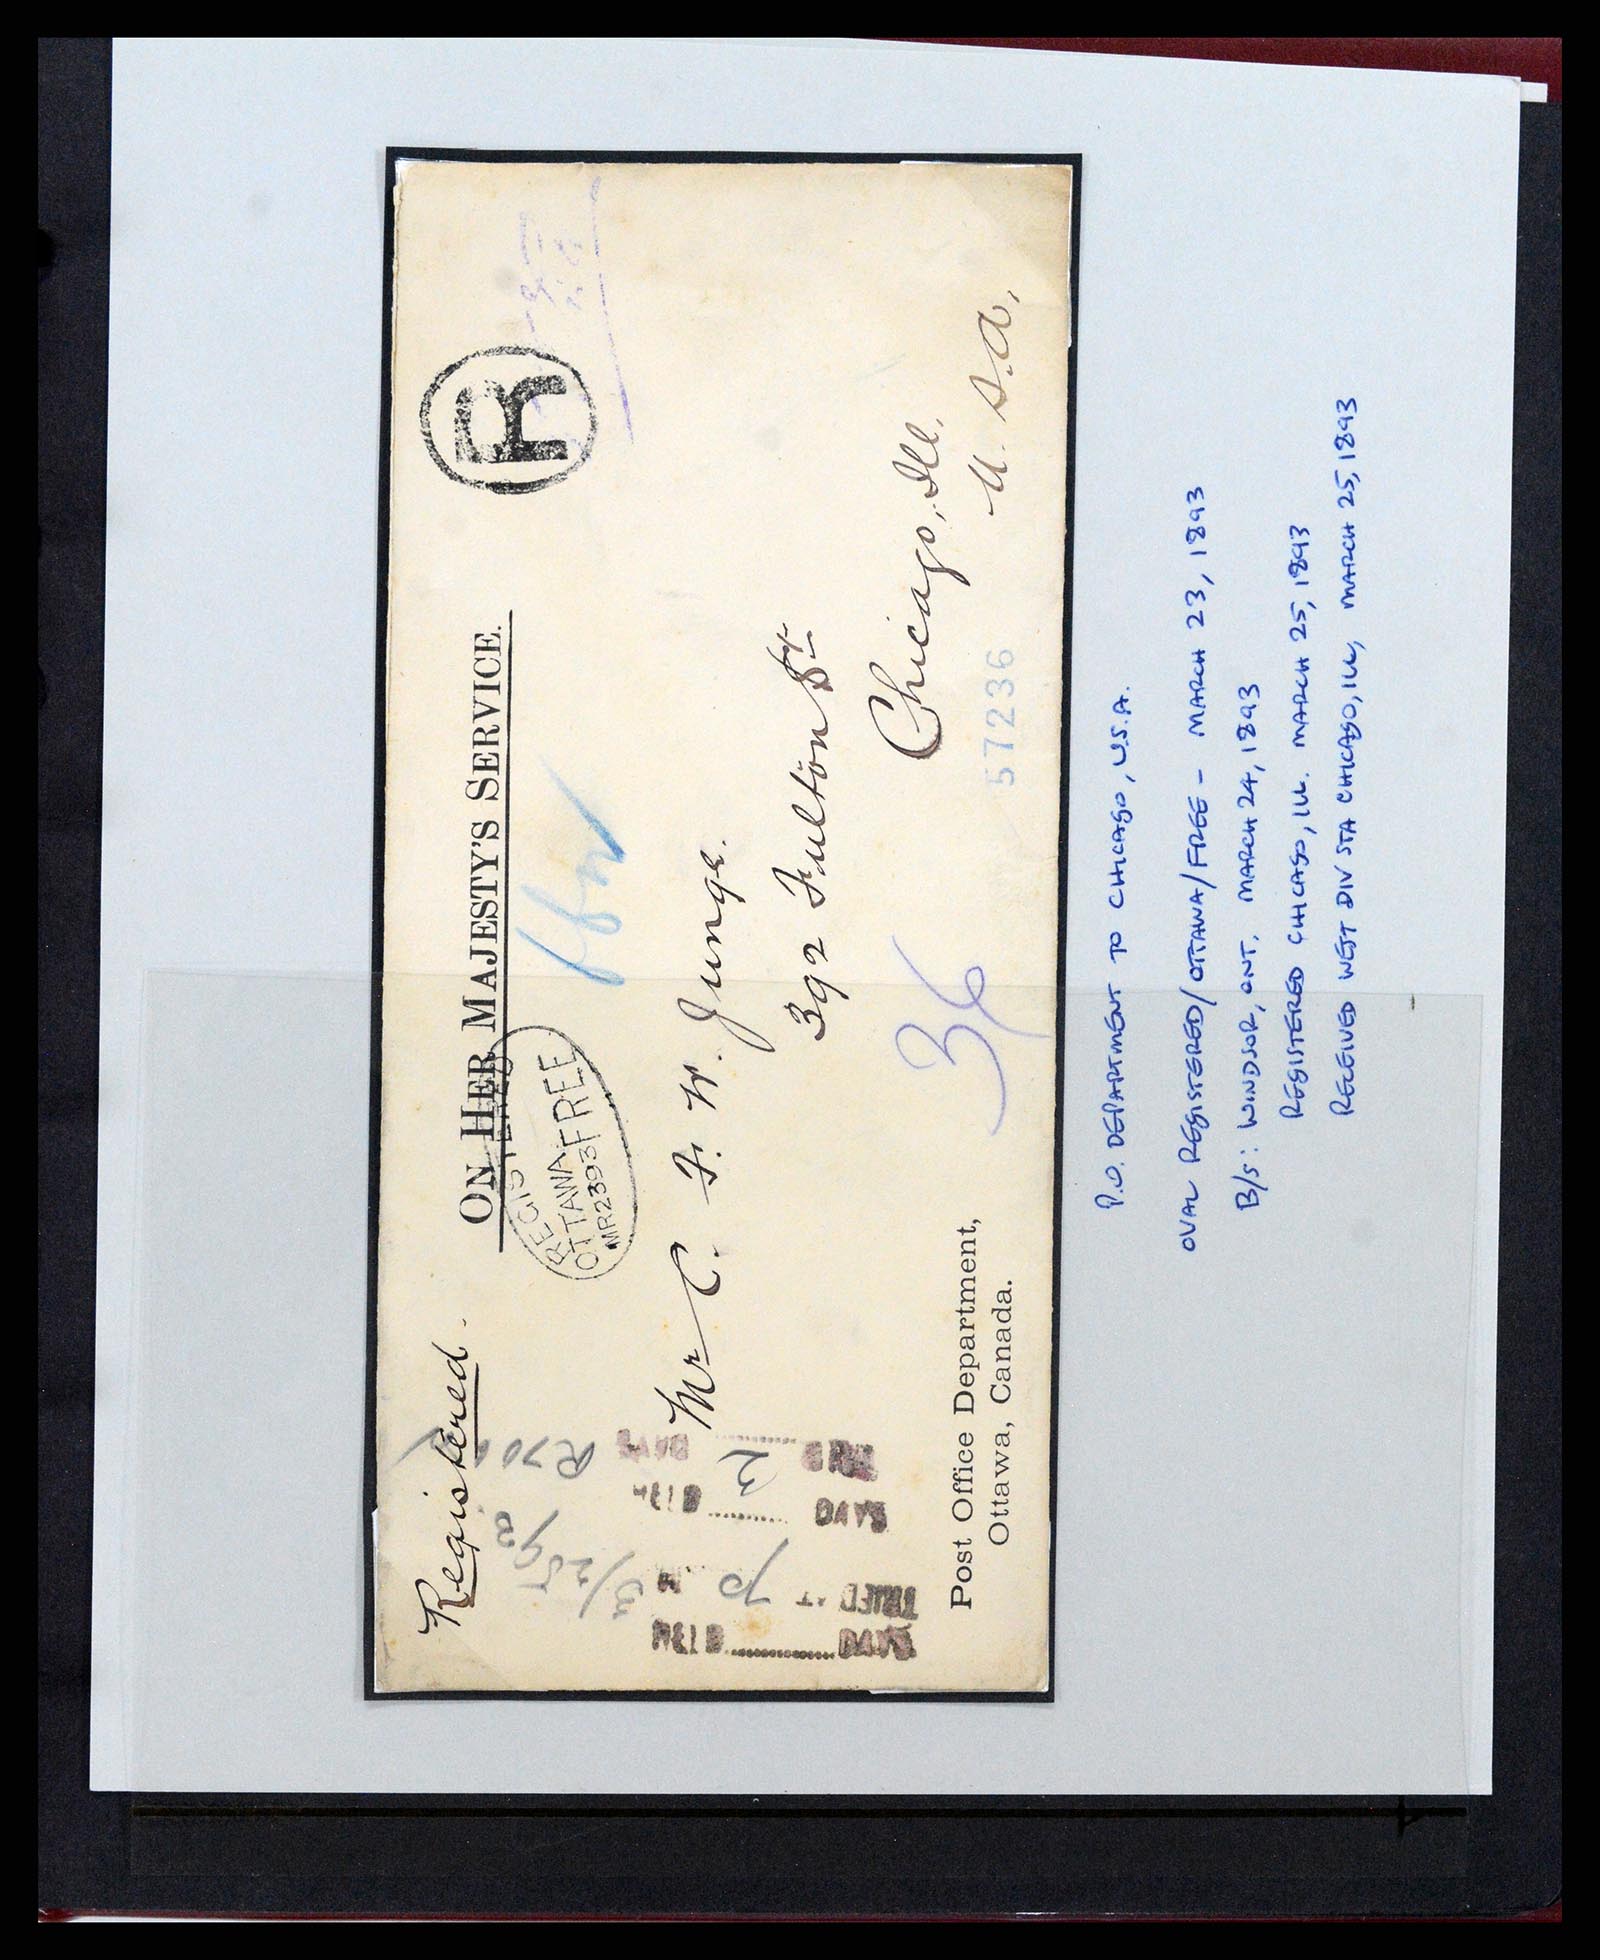 Registered.
ON HER MAJESTY'S SERVICE.
R
REGISTERED
OTTAWA FREE
MR 23 93
Mr C. F. W. Junge.
392 Fulton St
Chicago, Ill.
U. S. A.
36
57236
Post Office Department,
Ottawa, Canada.
3/25 93
R70
TRIED AT 70
P.O. DEPARTMENT TO CHICAGO, U.S.A.
OVAL REGISTERED/OTTAWA/FREE - MARCH 23, 1893
B/S: WINDSOR, ONT. MARCH 24, 1893
REGISTERED CHICAGO, ILL. MARCH 25, 1893
RECEIVED WEST DIV STA CHICAGO, ILL, MARCH 25, 1893